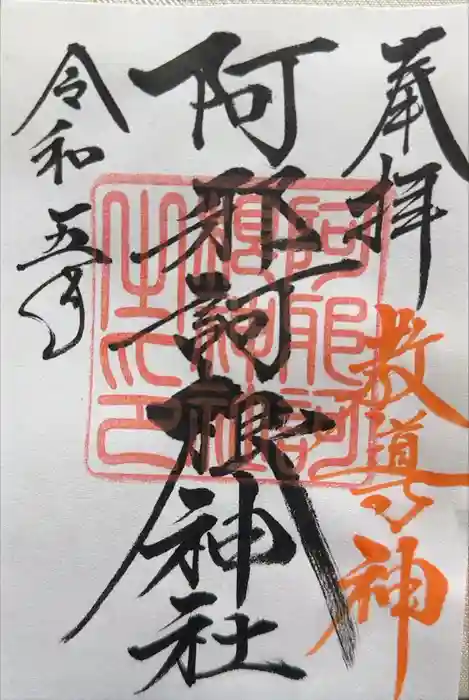 奉拝
教導の神
阿邪訶根神社
令和五年
阿邪訶
根神社
之印